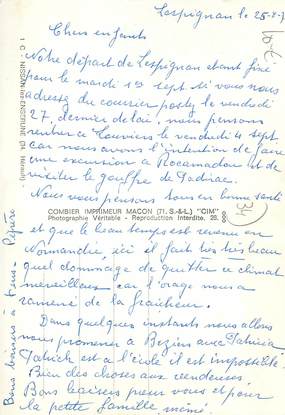 Lespignan le 25-8-7
Chers enfants
Notre départ de Lespignan étant fixé
pour le mardi 1er sept si vous nous
adressez du courrier postez le vendredi
27, dernier délai, nous pensons
rentrer à Louviers le vendredi 4 sept
car nous avons l'intention de faire
une excursion à Rocamadour et de
visiter le gouffre de Padirac.
Nous vous pensons tous en bonne santé
COMBIER IMPRIMEUR MACON (71. S.-&-L.) "CIM"
Photographie Véritable - Reproduction Interdite.
34
et que le beau temps est revenu en
Normandie, ici il fait très très beau
quel dommage de quitter ce climat
merveilleux car l'orage nous a
ramené de la fraîcheur.
Dans quelques instants nous allons
nous promener à Béziers avec Patricia
Patrick est à l'école il est impossible.
Bien des choses aux vendeuses.
Bons baisers pour vous et pour
la petite famille
Bons baisers à tous. Pépère
NISSAN-lez-ENSERUNE (34 Hérault)